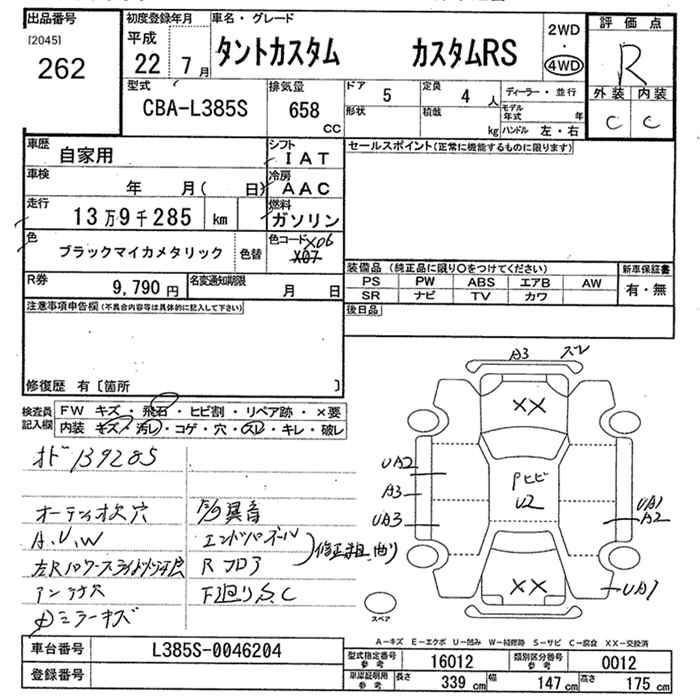 出品番号
[2045]
262
初度登録年月
平成
22 7月
車名・グレード
タントカスタム カスタムRS
2WD
・
4WD
評価点
R
外装 内装
C C
型式
CBA-L385S
排気量
658
cc
ドア
5
定員
4 人
形状
積載
kg
ディーラー・並行
モデル年式 年
ハンドル 左・右
車歴
自家用
シフト
IAT
車検
年 月( 日)
冷房
AAC
走行
13万9千285 km
燃料
ガソリン
色
ブラックマイカメタリック
色替
色コード X06
X07
R券
9,790 円
名変通知期限
月 日
セールスポイント(正常に機能するものに限ります)
装備品 (純正品に限り○をつけてください)
新車保証書
PS PW ABS エアB AW
有・無
SR ナビ TV カワ
後日品
注意事項申告欄(不具合内容等は具体的に記入して下さい)
修復歴 有〔箇所 〕
検査員
記入欄
FW キズ・飛石・ヒビ割・リペア跡・×要
内装 キズ・汚レ・コゲ・穴・スレ・キレ・破レ
オド 139285
オーディオ欠 穴
A、U、W
アンテ穴
ミラーキズ
異音
エンドパネル
Rフロア
修正 曲り
F廻りS、C
A3 ズレ
XX
UA2
A3
UA3
Pヒビ
U2
UA1
A2
XX
UA1
スペア
A-キズ E-エクボ U-凹み W-補修跡 S-サビ C-腐食 XX-交換済
車台番号
L385S-0046204
登録番号
型式指定番号
参考
16012
類別区分番号
参考
0012
車庫証明用
参考
長さ
339 cm
幅
147 cm
高さ
175 cm